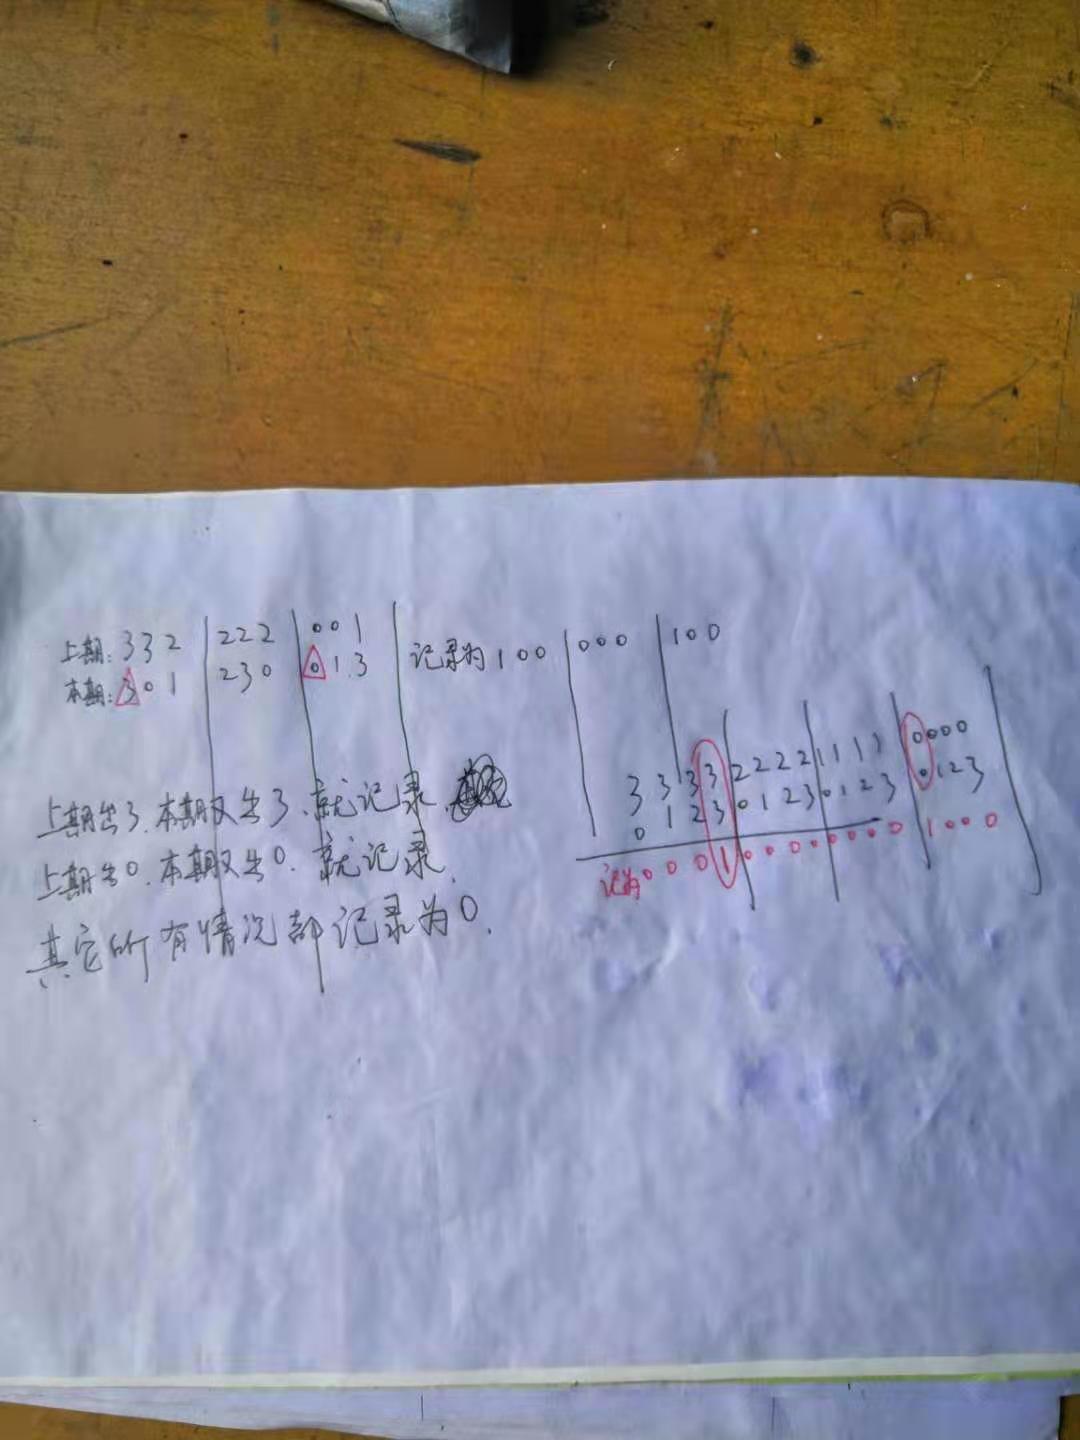 上期: 332 222 001
本期: 301 230 013 记录为 100 000 100
上期出3.本期又出3.就记录
上期出0.本期又出0.就记录.
其它所有情况都记录为0.
3333 2222 1111 0000
0123 0123 0123 0123
记为 0001 0000 0000 1000